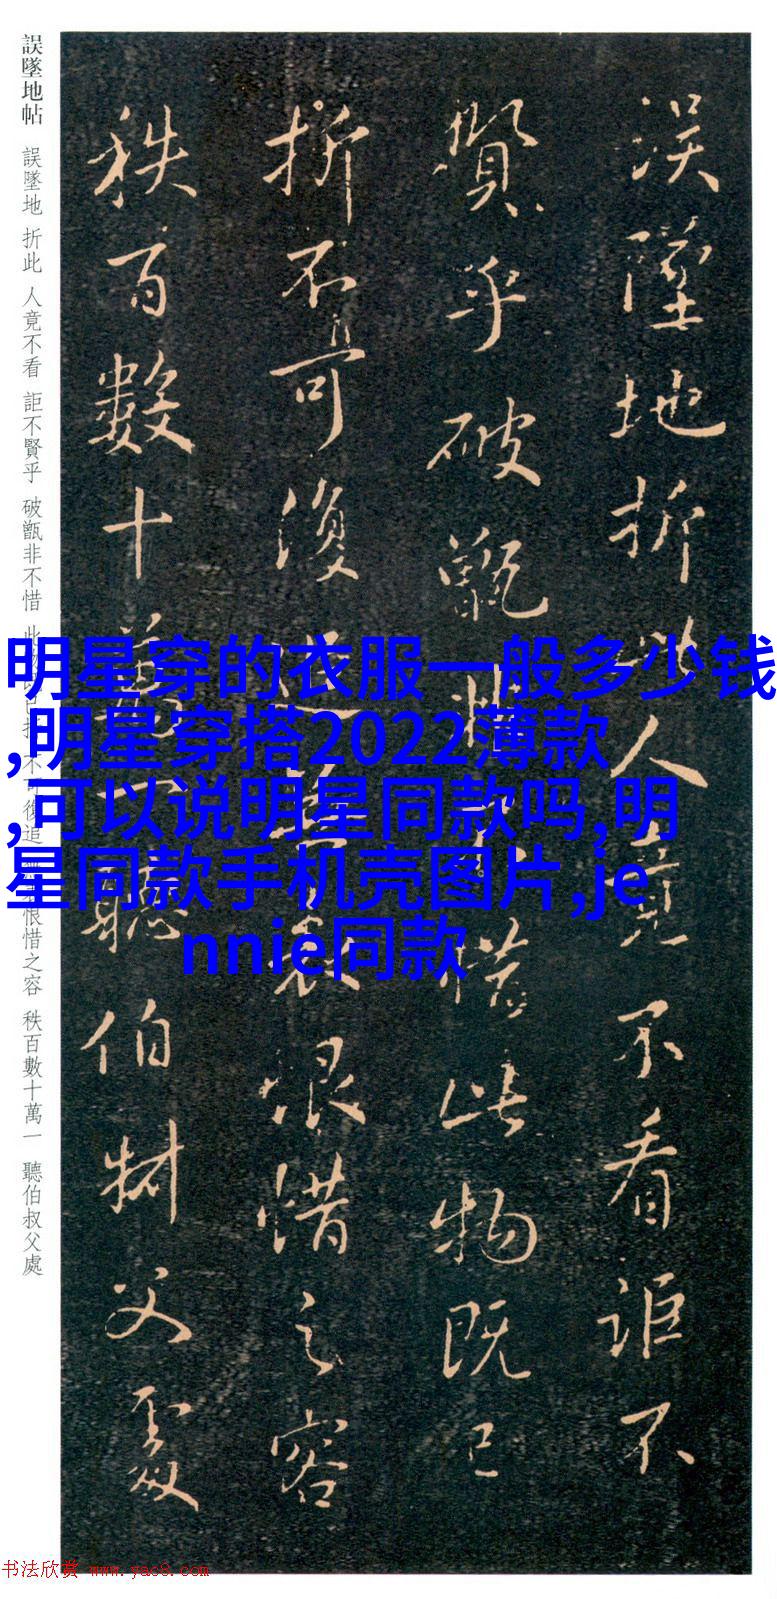 誤墜地折此人竟不看詎不
賢乎破甑非不惜此物既已
折不可復追 恨惜之容
秩百數十萬一聽伯叔父處
誤墜地帖 誤墜地 折此 人竟不看 詎不賢乎 破甑非不惜 此 復追 恨惜之容 秩百數十萬一 聽伯叔父處
明星穿的衣服一般多少钱
,明星穿搭2022薄款
,可以说明星同款吗,明
星同款手机壳图片,je
nnie同款
书法欣赏 www.yac8.com